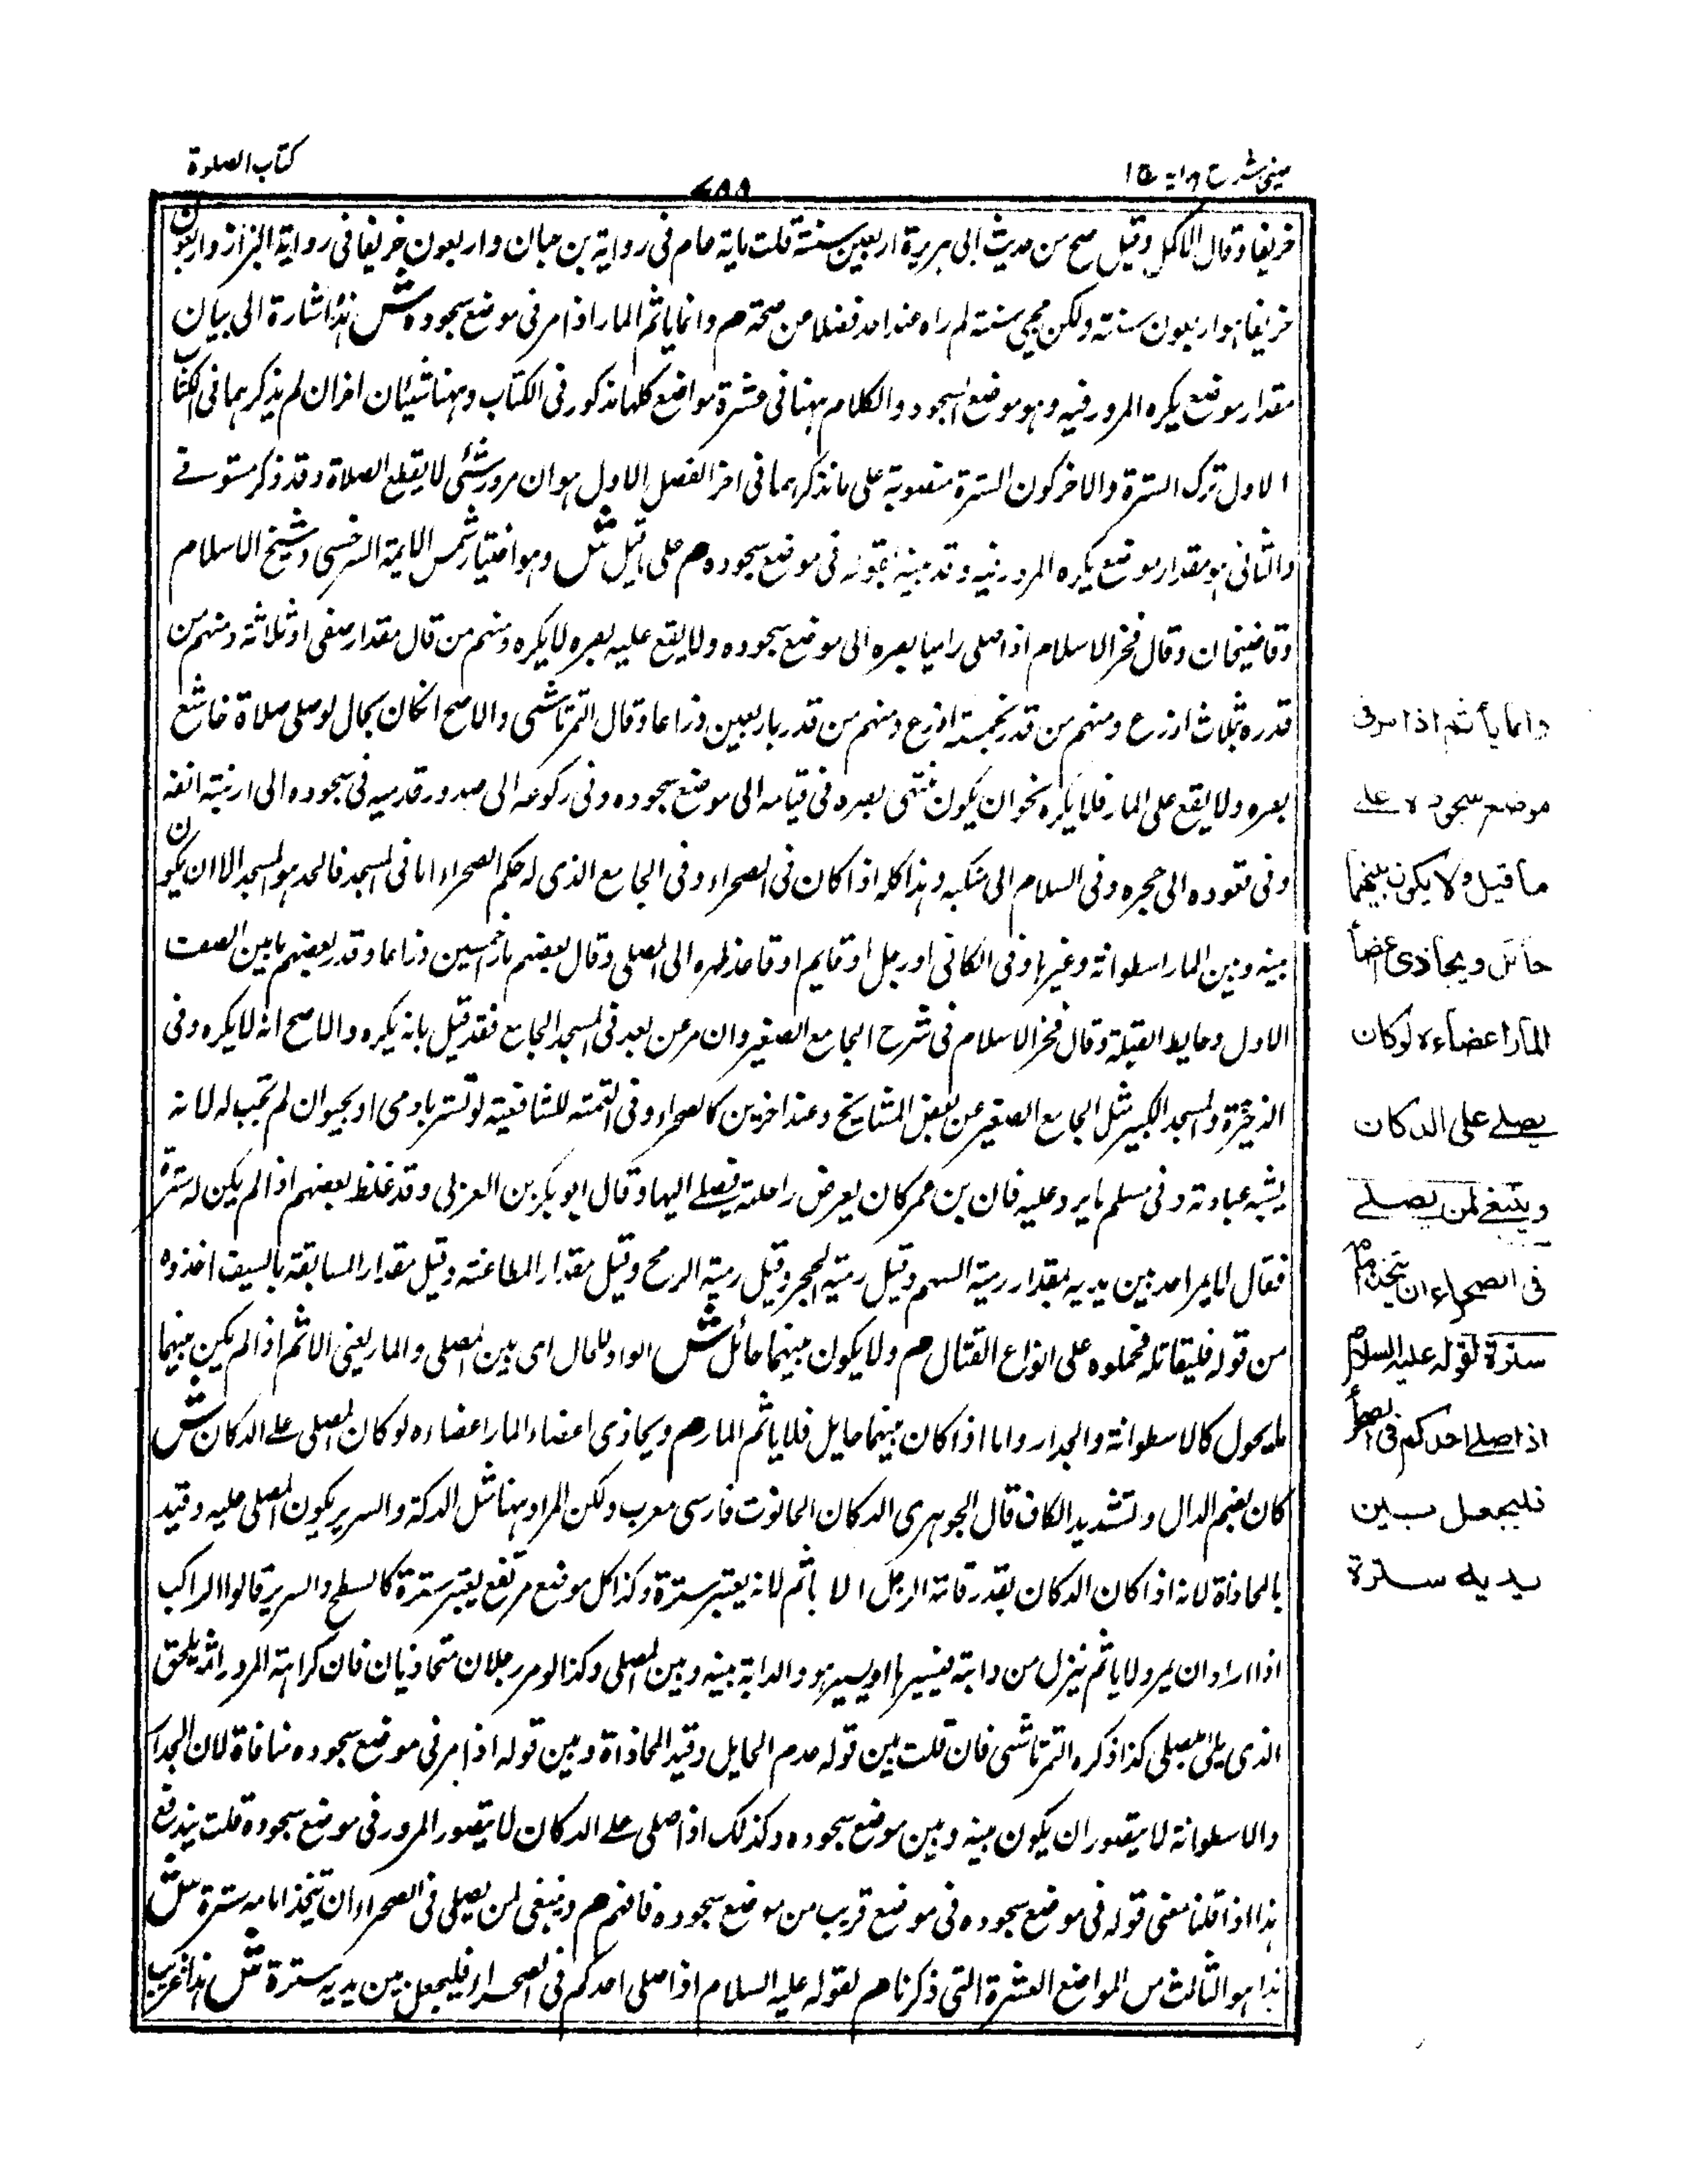 عينى شرح هداية ج ١
٧٨٨
كتاب الصلوة
خريفا وقال الاكمل وقيل صح من حديث ابى هريرة اربعين سنة قلت ماية عام فى رواية بن حبان واربعون خريفا فى رواية البزاز واربعون
خريفا هو اربعون سنة ولكن مجى سنة لم راه عند احد فضلا من صحة م وانما ياثم المار اذا مر فى موضع سجوده ش هذا اشارة الى بيان
مقدار موضع يكره المرور فيه وهو موضع السجود والكلام ههنا فى عشرة مواضع كلها مذكور فى الكتاب وههنا شيئان اخران لم يذكرهما فى الكتاب
الاول ترك السترة والاخر كون السترة مغصوبة على ما نذكرهما فى اخر الفصل الاول هو ان مرور شئى لا يقطع الصلاة وقد ذكر مستوفے
والثانى هو مقدار موضع يكره المرور فيه وقد بينه بقوله فى موضع سجوده م على ما قيل ش وهو اختيار شمس الايمة السرخسى وشيخ الاسلام
وقاضيخان وقال فخر الاسلام اذا صلى راميا بصره الى موضع سجوده ولا يقع عليه بصره لا يكره ومنهم من قال مقدار صفى او ثلاثة ومنهم من
قدره بثلاث اذرع ومنهم من قدر بخمسة اذرع ومنهم من قدر باربعين ذراعا وقال التمرتاشى والاصح انكان بحال لو صلى صلاة خاشع
بصره ولا يقع على المار فلا يكره نحو ان يكون منتهى بصره فى قيامه الى موضع سجوده وفى ركوعه الى صدور قدميه فى سجوده الى ارنبة انفه
وفى قعوده الى حجره وفى السلام الى منكبه وهذا كله اذا كان فى الصحراء وفى الجامع الذى له حكم الصحراء اما فى المسجد فالحد هو المسجد الا ان يكون
بينه وبين المار اسطوانة وغيرها وفى الكافى او رجل او قايم او قاعد ظهره الى المصلى وقال بعضهم مازخمسين ذراعا وقدر بعضهم ما بين الصف
الاول وحايط القبلة وقال فخر الاسلام فى شرح الجامع الصغير وان مر عن بعد فى المسجد الجامع فقد قيل بانه يكره والاصح انه لا يكره وفى
الذخيرة والمسجد الكبير مثل الجامع الصغير عن بعض المشايخ وعند اخرين كالصحراء وفى التتمة للشافعية لو تستر بادمى او بحيوان لم تجب له لانه
يشبه عبادته وفى مسلم ما يرد عليه فان بن عمر كان يعرض راحلته فيصلے اليها وقال ابو بكر بن العربى وقد غلط بعضهم اذا لم يكن له سترة
فقال لا يمر احد بين يديه بمقدار رمية السهم وقيل رمية الحجر وقيل رمية الرمح وقيل مقدار المطاعنة وقيل مقدار السابقة بالسيف اخذوه
من قوله فليقاتله فحملوه على انواع القتال م ولا يكون بينهما حائل ش الواو للحال اى بين المصلى والمار يعنى الاثم اذا لم يكن بينهما
ما يحول كالاسطوانة والجدار واما اذا كان بينهما حايل فلا ياثم المار م ويحاذى اعضاء المار اعضاءه لو كان المصلى علے الدكان ش
كان بضم الدال وتشديد الكاف قال الجوهرى الدكان الحانوت فارسى معرب ولكن المراد ههنا مثل الدكة والسرير يكون المصلى عليه وقيد
بالمحاذاة لانه اذا كان الدكان بقدر قامة الرجل الا ياثم لانه يعتبر سترة وكذا كل موضع مرتفع يعتبر سترة كالسطح والسرير قالوا الراكب
اذا اراد ان يمر ولا ياثم ينزل من دابته فيسيرها او يسير هو والدابة بينه وبين المصلى وكذا لو مر رجلان متحاذيان فان كراهة المرور اثمه يلحق
الذى يلى المصلى كذا ذكره التمرتاشى فان قلت بين قوله عدم الحايل وقيد المحاذاة وبين قوله اذا مر فى موضع سجوده منافاة لان الجدار
والاسطوانة لا يتصور ان يكون بينه وبين موضع سجوده وكذلك اذا صلى علے الدكان لا يتصور المرور فى موضع سجوده قلت يندفع
هذا اذا قلنا معنى قوله فى موضع سجوده فى موضع قريب من موضع سجوده فافهم م وينبغى لمن يصلى فى الصحراء ان يتخذ امامه سترة ش
هذا هو الثالث من المواضع العشرة التى ذكرنا م لقوله عليه السلام اذا صلى احدكم فى الصحراء فليجعل بين يديه سترة ش هذا غريب
وانما يأثم اذا مر فى
موضع سجوده علے
ما قيل ولا يكون بينهما
حائل ويحاذى اعضاء
المار اعضاءه لو كان
يصلے على الدكان
وينبغے لمن يصلے
فى الصحراء ان يتخذ امامه
سترة لقوله عليه السلام
اذا صلے احدكم فى الصحراء
فليجعل بين
يديه سترة